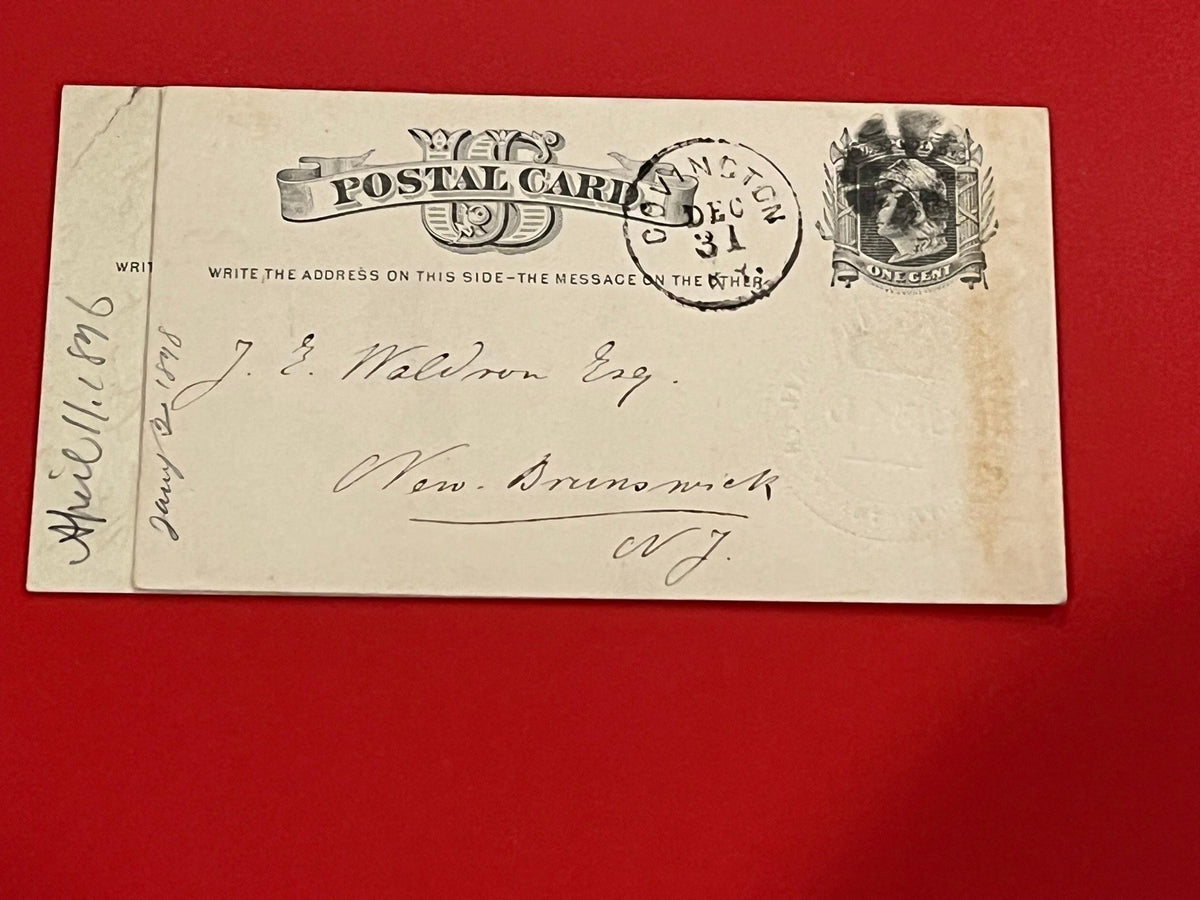 US
POSTAL CARD
WRITE THE ADDRESS ON THIS SIDE-THE MESSAGE ON THE OTHER
COVINGTON
DEC
31
KY.
ONE CENT
J. E. Waldron Esq.
New. Brunswick
N J.
Jany 2 1878
WRIT
April 11. 1876